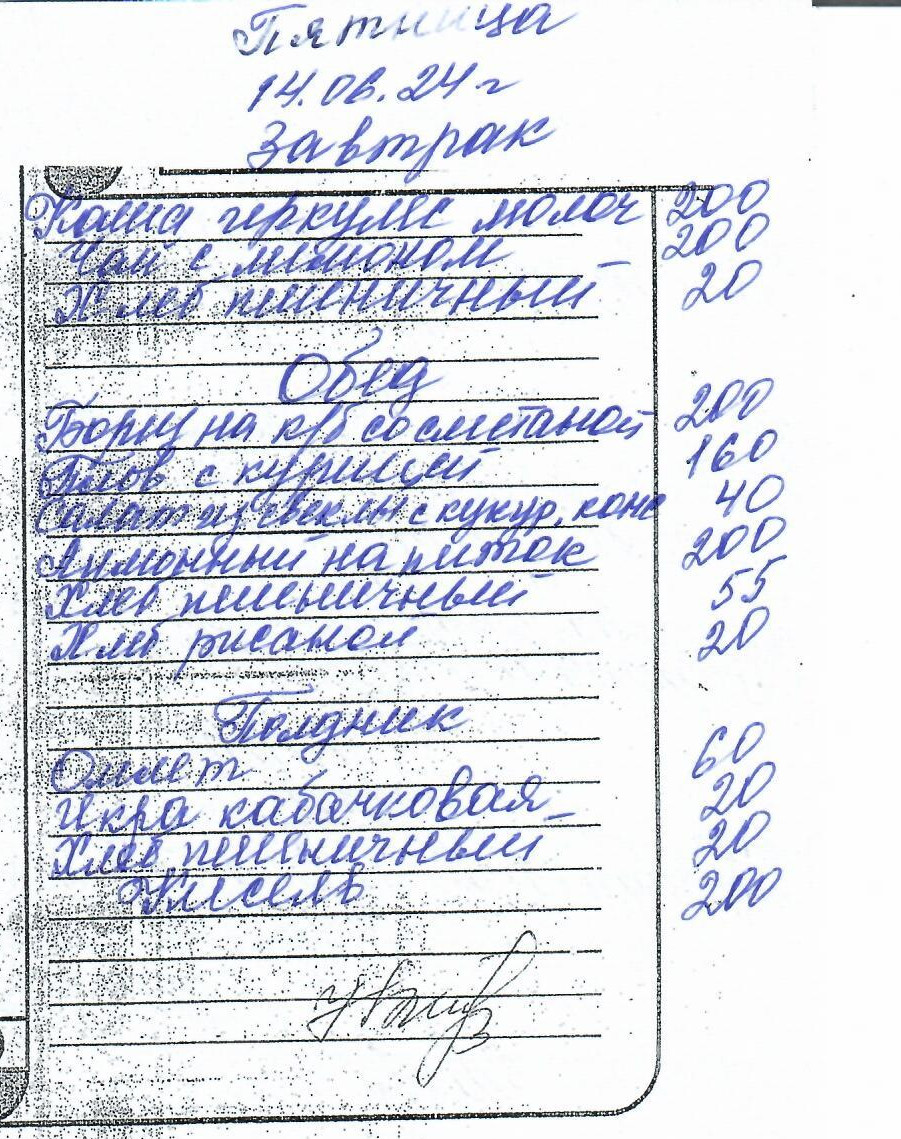 Пятница
14.06.24 г
Завтрак
Каша геркулес молоч 200
Чай с лимоном 200
Хлеб пшеничный 20
Обед
Борщ на к/б со сметаной 200
Плов с курицей 160
Салат из свеклы с кукур. конс 40
Лимонный напиток 200
Хлеб пшеничный 55
Хлеб ржаной 20
Полдник
Омлет 60
Икра кабачковая 20
Хлеб пшеничный 20
Кисель 200